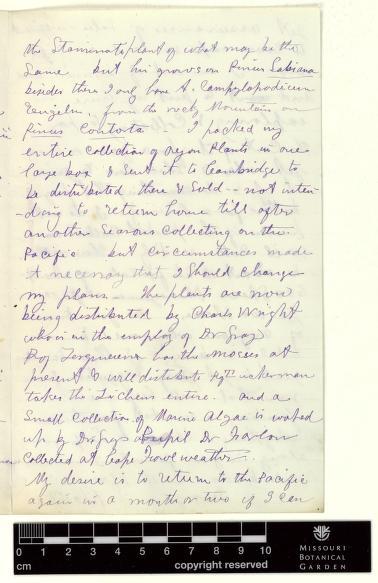 the Staminate plant of what may be the
Same but his grows on Pinus Sabiana
besides these I only have A. Campylopodum
Engelm. from the rocky Mountains on
Pinus Contorta - I packed my
entire Collection of Oregon Plants in one
large box & Sent it to Cambridge to
be distributed there & Sold -- not inten-
-ding to return home till after
another Season's Collecting on the
Pacific but Circumstances made
it necessary that I Should Change
my plans - The plants are now
being distributed by Charles Wright
who is in the employ of Dr Gray
Prof Lesquereux has the mosses at
present & will distribute
takes the Lichens entire. and a
Small Collection of Marine Algae is worked
up by Dr Grays Pupil Dr Farlow
Collected at Cape Foulweather.
My desire is to return to the Pacific
again in a month or two if I can
0 1 2 3 4 5 6 7 8 9 10
cm
copyright reserved
MISSOURI
BOTANICAL
GARDEN